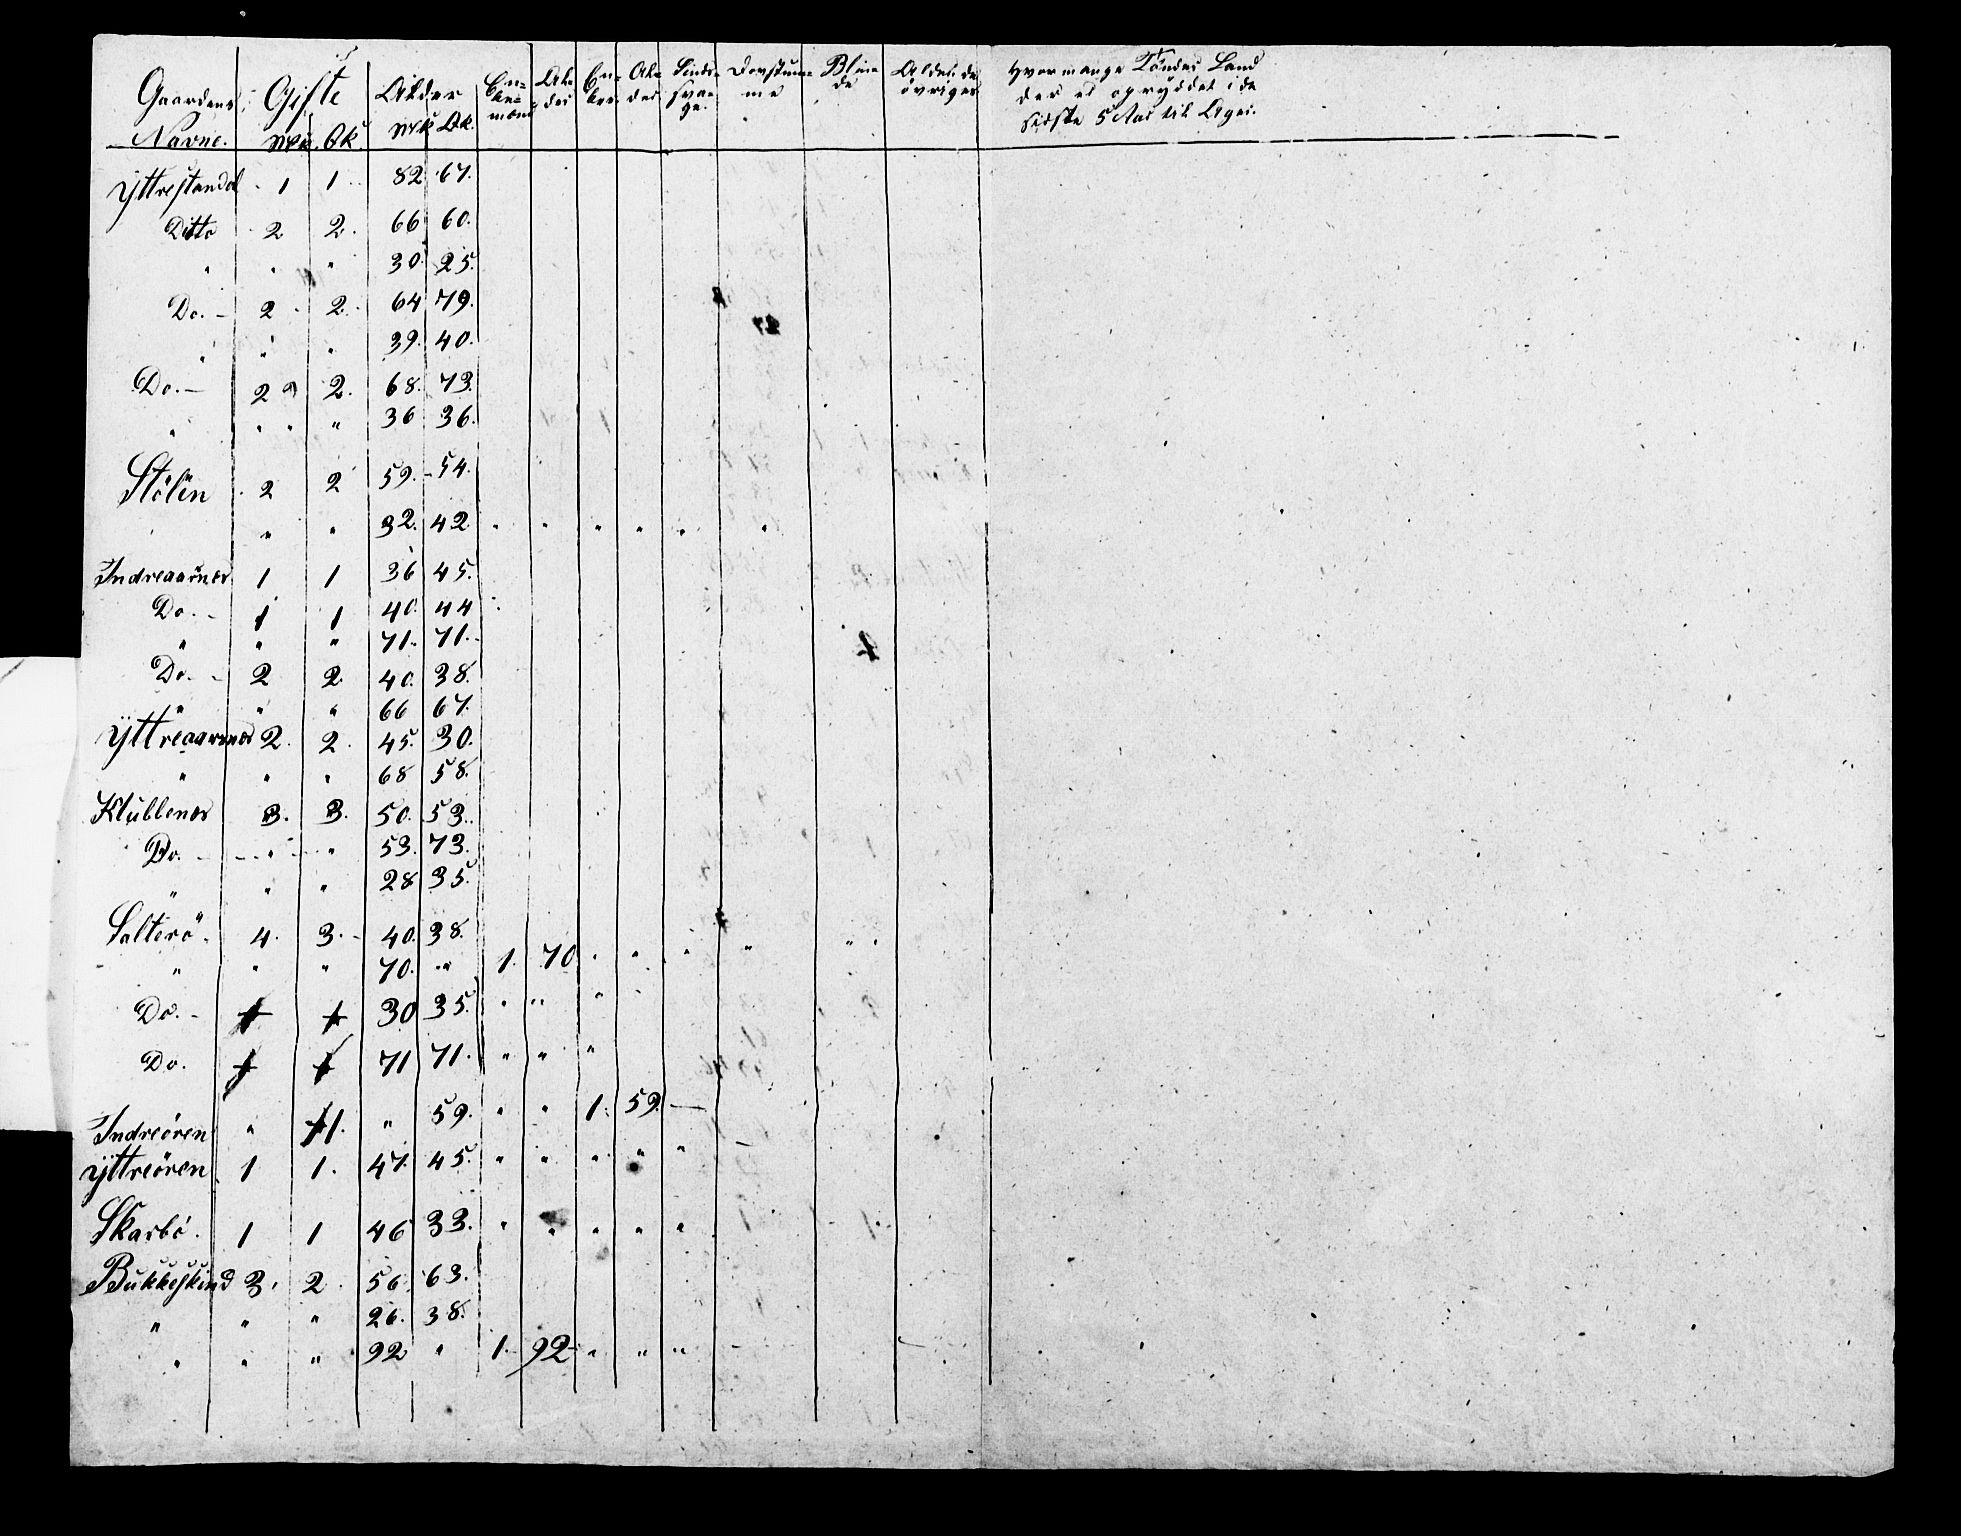 Gaardens Gifte Alder En- Al- En- Al- Sinds- Døvstum- Blin- Alder de Hvor mange Tönder Land
Navne. Mk. Qk. Mk Qk. ke- der ker. der. sva- me de övriges der er opryddet i de
mænd ge. sidste 5 Aar til Ager.
Yttrestandal 1 1 82. 67.
Ditto 2 2. 66 60.
" " " 30. 25.
Do. - 2 2. 64 79.
" " " 39. 40.
Do. - 2 2. 68. 73.
" " " 36 36.
Stölen 2 2 59. - 54.
" " 32. 42 " " " " " "
Indreaarnes 1 1 36 45.
Do. - 1 1 40. 44
" " " 71. 71.
Do. - 2 2. 40. 38.
" " " 66 67.
Yttreaarnes 2. 2. 45. 30.
" " " 68 58.
Klubbenes 3. 3. 50. 53.
Do. - " " 53. 73.
" " " 28 35.
Salterö. 4. 3. - 40. 38.
" " " 70. " 1. 70 " " " " "
Do. - 1 1 30 35. " " "
Do. 1 1 71 71. " " "
Indreören " 1. " 59. " " 1. 59. -
Yttreören 1 1. 47. 45. " " " " "
Skarbö. 1 1 46 33. " " " " "
Bukkeskind 3. 2. 56. 63.
" " " 26. 38.
" " " 92 " 1. 92 " " "